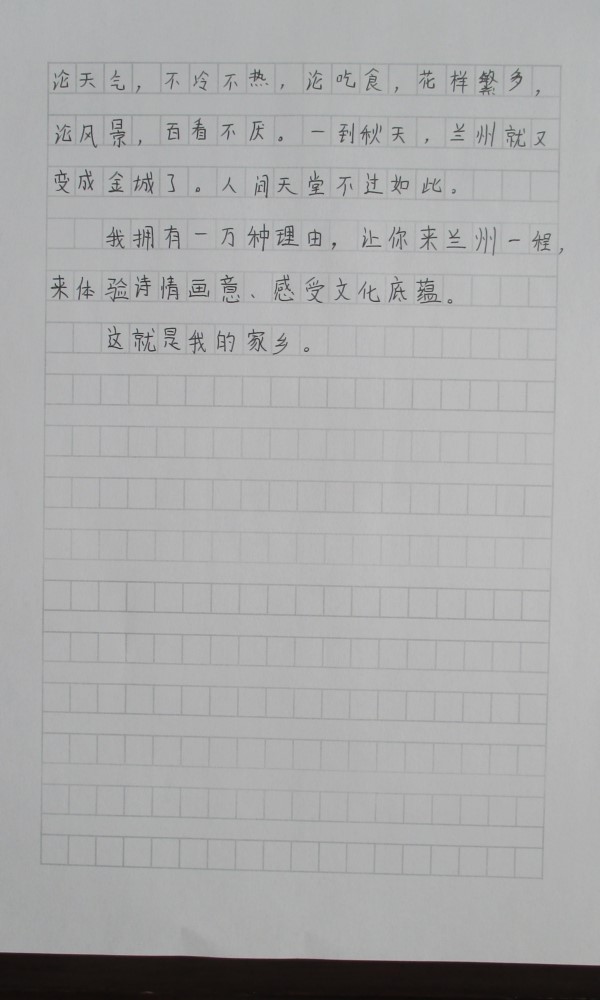 论天气，不冷不热，论吃食，花样繁多，
论风景，百看不厌。一到秋天，兰州就又
变成金城了。人间天堂不过如此。
我拥有一万种理由，让你来兰州一程，
来体验诗情画意、感受文化底蕴。
这就是我的家乡。